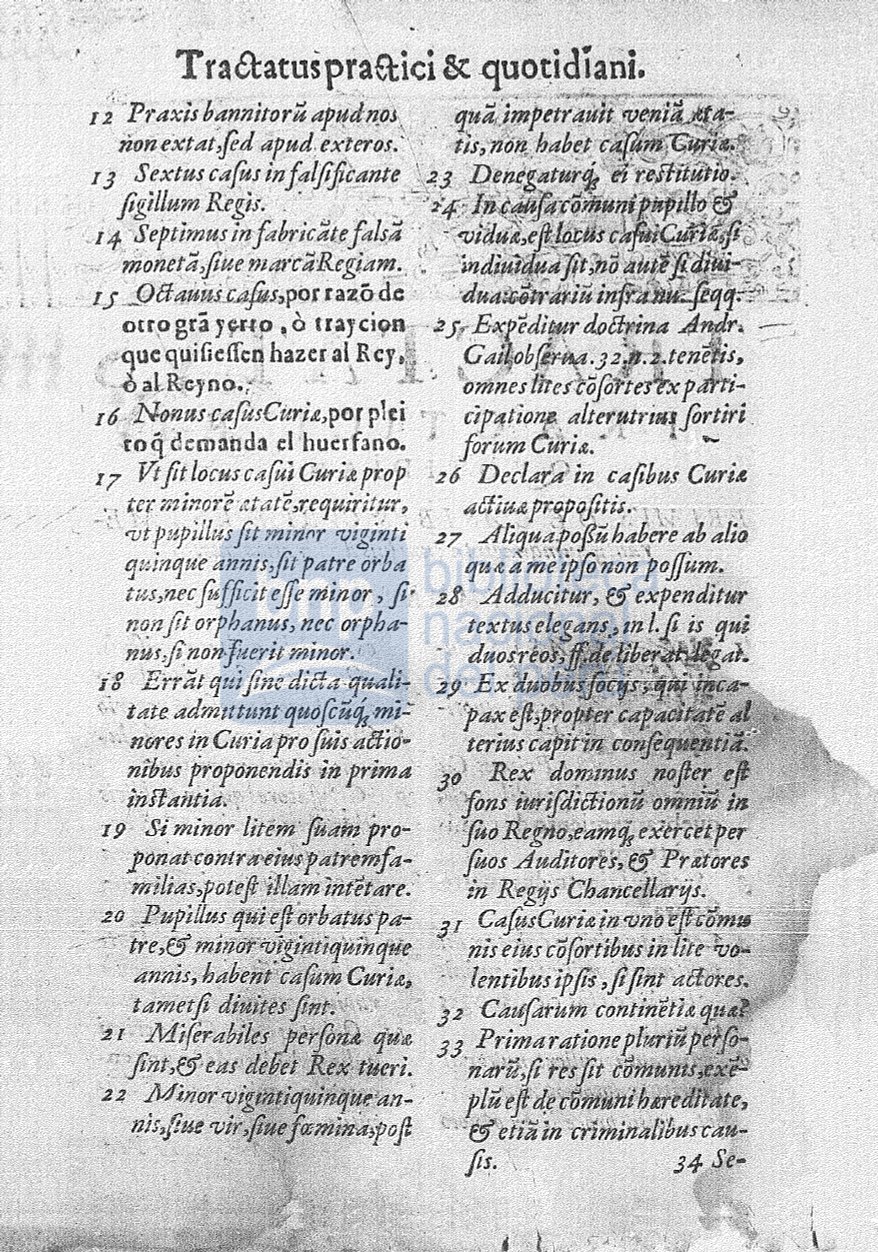 Tractatus practici & quotidiani.
12 Praxis bannitorū apud nos
non extat, sed apud exteros.
13 Sextus casus in falsificante
sigillum Regis.
14 Septimus in fabricāte falsā
monetā, siue marcā Regiam.
15 Octauus casus, por razō de
otro grā yerro, ò traycion
que quisiessen hazer al Rey,
ò al Reyno.
16 Nonus casus Curiæ, por plei
to q̄ demanda el huerfano.
17 Vt sit locus casui Curiæ prop
ter minorē ætatē, requiritur,
vt pupillus sit minor viginti
quinque annis, sit patre orba
tus, nec sufficit esse minor, si
non sit orphanus, nec orpha-
nus, si non fuerit minor.
18 Errāt qui sine dicta quali-
tate admittunt quoscūq; mi-
nores in Curia pro suis actio-
nibus proponendis in prima
instantia.
19 Si minor litem suam pro-
ponat contra eius patremfa-
milias, potest illam intētare.
20 Pupillus qui est orbatus pa-
tre, & minor vigintiquinque
annis, habent casum Curiæ,
tametsi diuites sint.
21 Miserabiles personæ quæ
sint, & eas debet Rex tueri.
22 Minor vigintiquinque an-
nis, siue vir, siue fœmina, post
quā impetrauit veniā æta-
tis, non habet casum Curiæ.
23 Denegaturq; ei restitutio.
24 In causa cōmuni pupillo &
viduæ, est locus casui Curiæ, si
indiuidua sit, nō autē si diui-
dua: cōtrariū infra nu. seqq.
25 Expēditur doctrina Andr.
Gail obserua. 32. n. 2. tenētis,
omnes lites cōsortes ex parti-
cipatione alterutrius sortiri
forum Curiæ.
26 Declara in casibus Curiæ
actiuæ propositis.
27 Aliqua possū habere ab alio
quæ à me ipso non possum.
28 Adducitur, & expenditur
textus elegans, in l. si is qui
duos reos, ff. de liberat. legat.
29 Ex duobus socijs, qui inca-
pax est, propter capacitatē al
terius capit in consequentiā.
30 Rex dominus noster est
fons iurisdictionū omniū in
suo Regno, eamq; exercet per
suos Auditores, & Prætores
in Regijs Chancellarijs.
31 Casus Curiæ in vno est cōmu
nis eius cōsortibus in lite vo-
lentibus ipsis, si sint actores.
32 Causarum continētia quæ?
33 Prima ratione pluriū perso-
narū, si res sit cōmunis, exē-
plū est de cōmuni hæreditate,
& etiā in criminalibus cau-
sis.
34 Se-
biblioteca
nacional
del perú
bnp